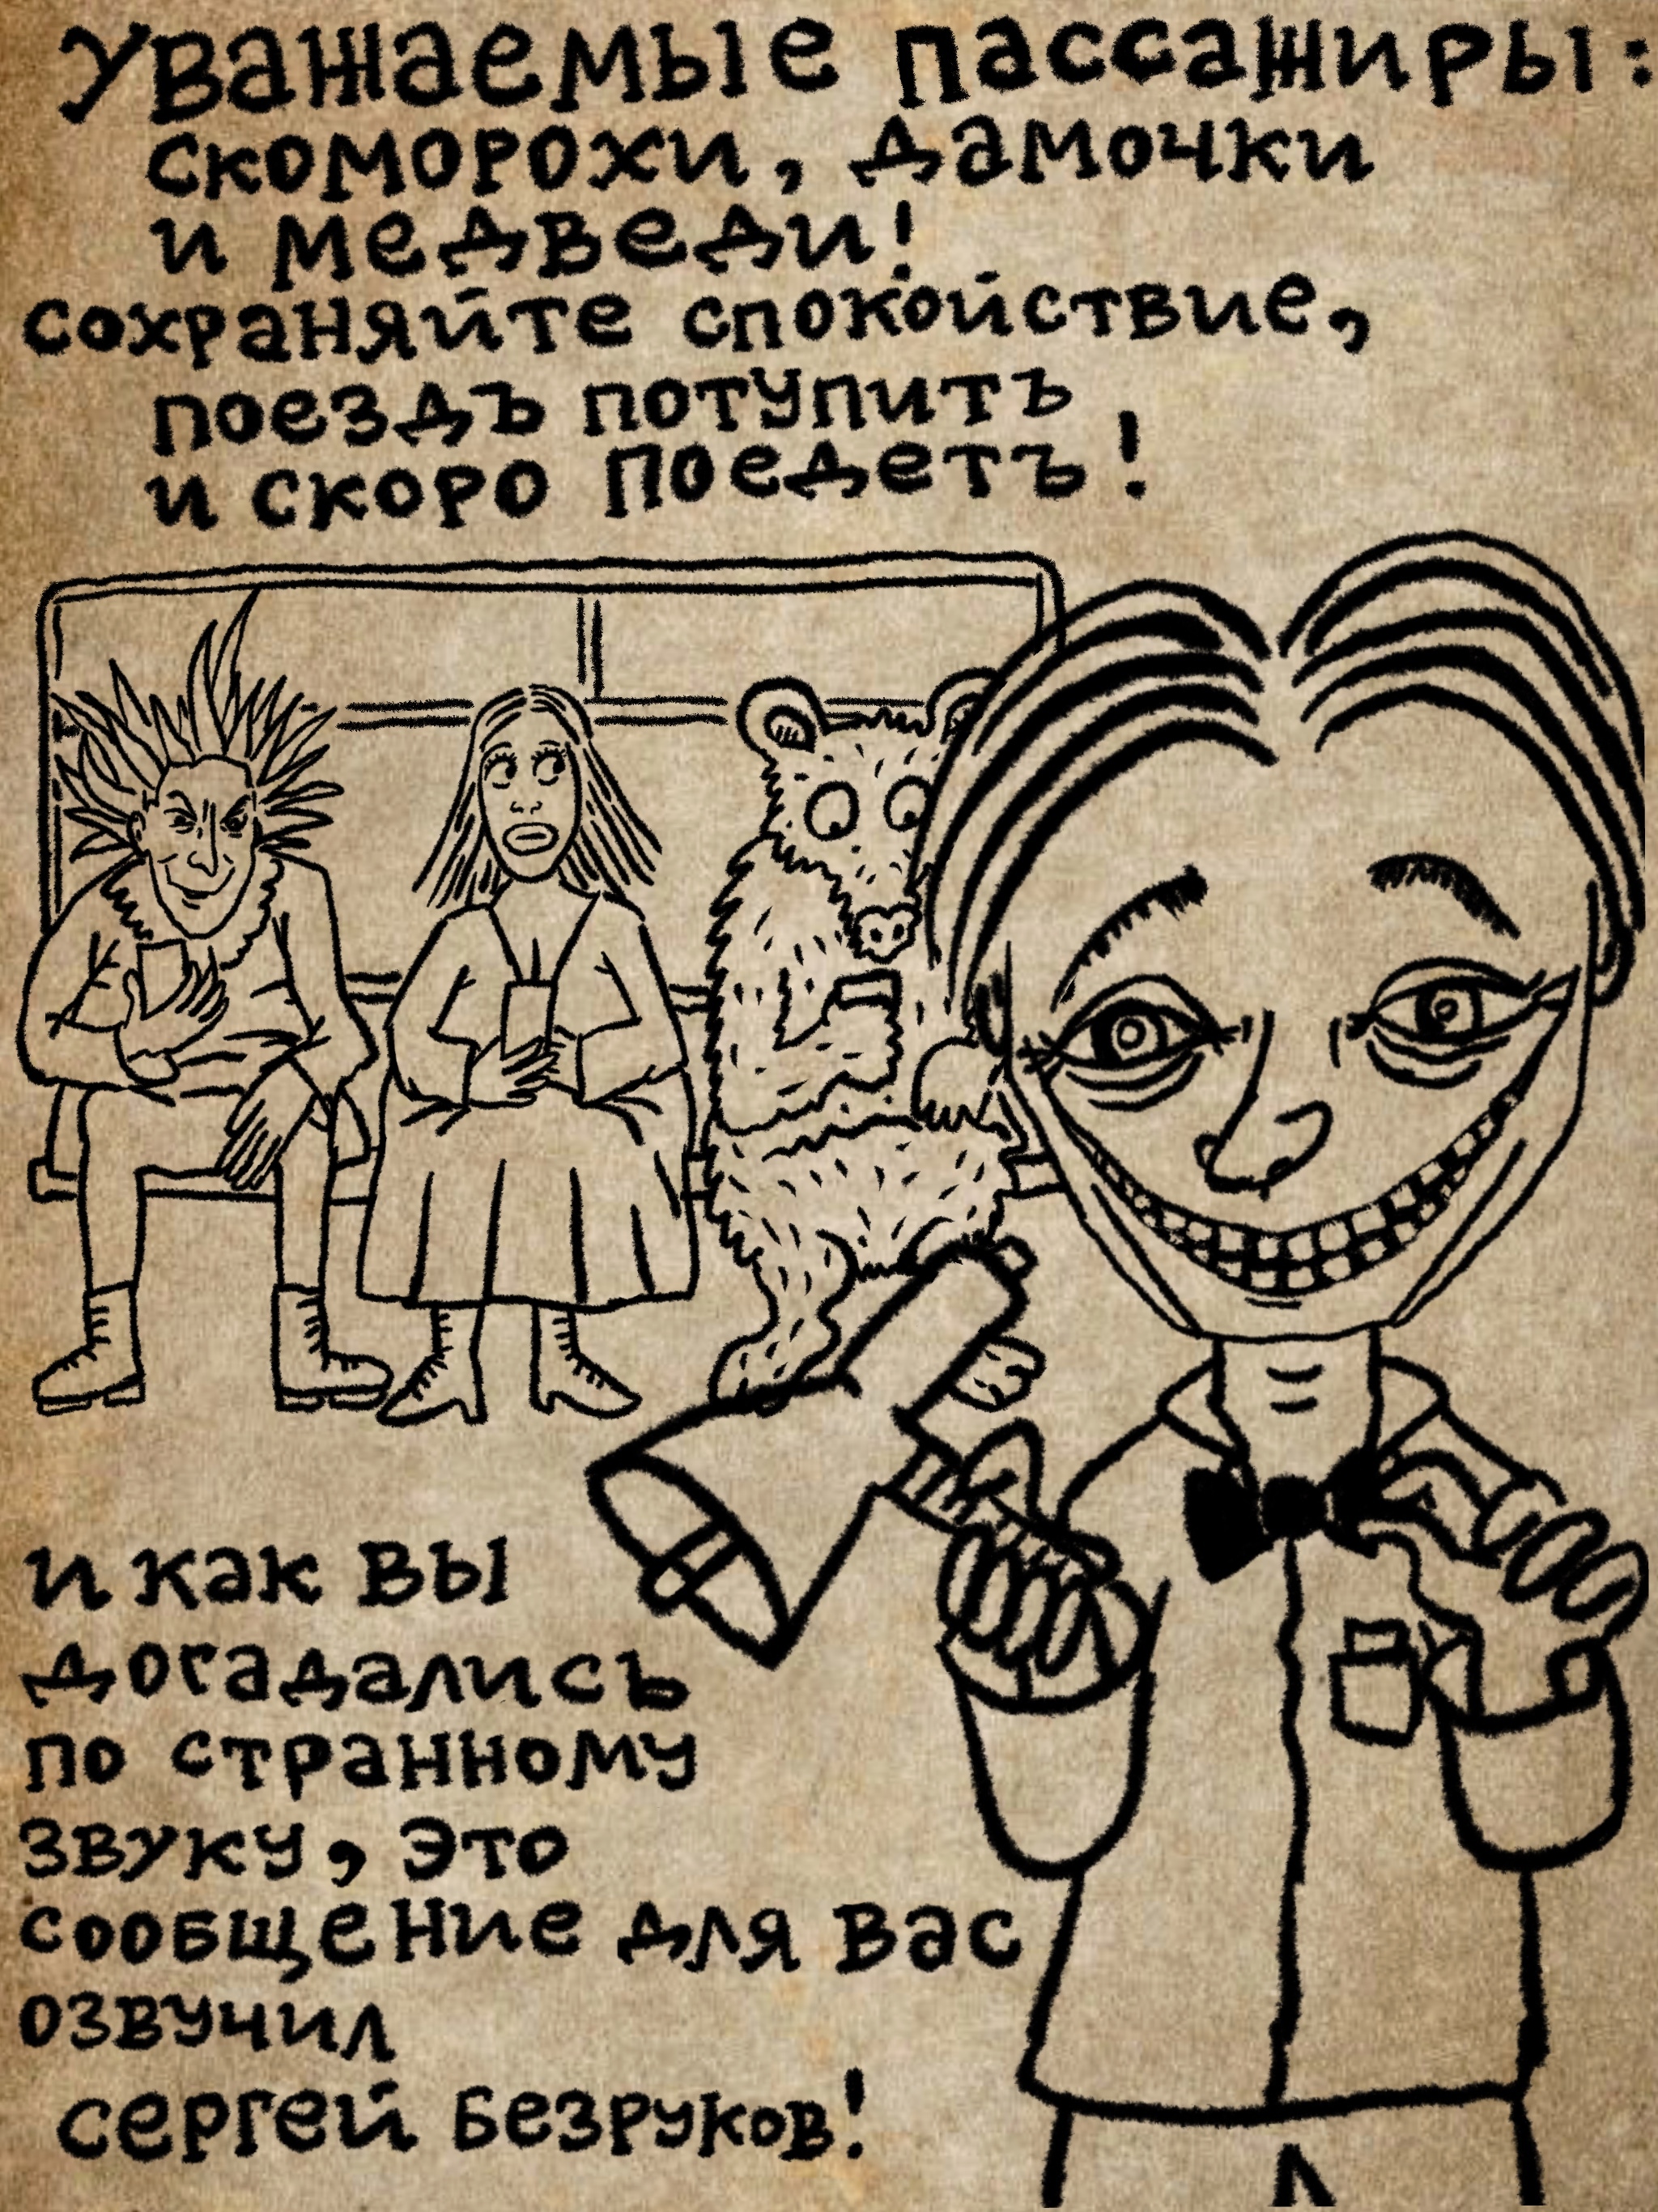 Уважаемые пассажиры:
скоморохи, дамочки
и медведи!
сохраняйте спокойствие,
поездъ потупитъ
и скоро поедетъ!
и как вы
догадались
по странному
звуку, это
сообщение для вас
озвучил
сергей Безруков!